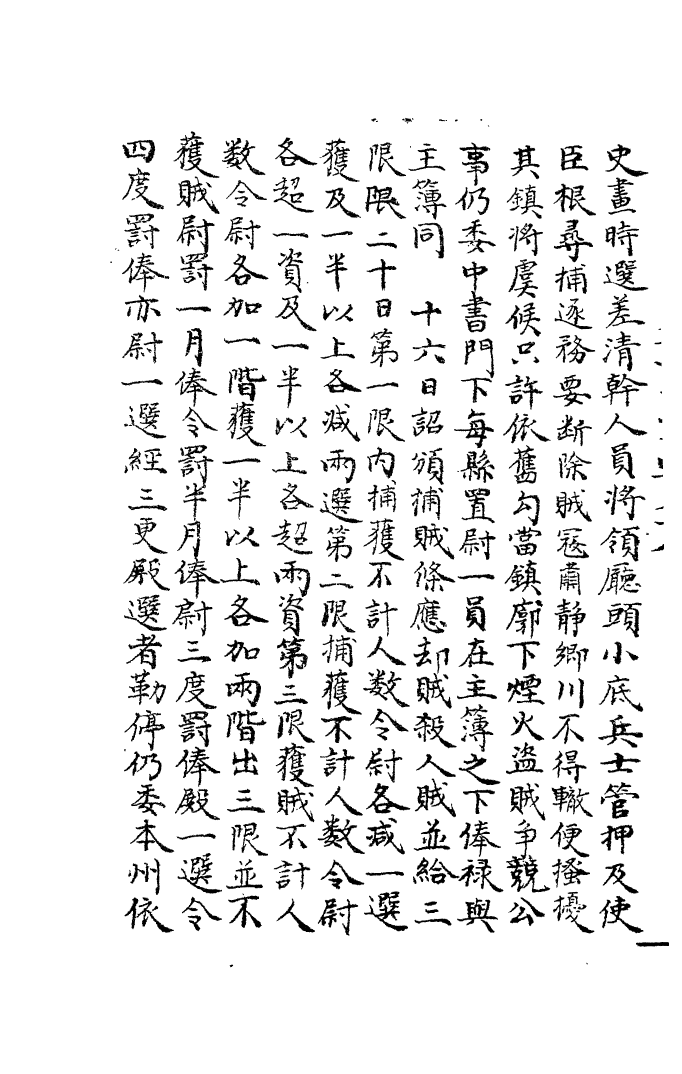 史畫時選差清幹人員將領廳頭小底兵士管押及使
臣根尋捕逐務要斷除賊寇肅静鄉川不得轍便搔擾
其鎮將虞候只許依舊勾當鎮廓下煙火盜賊爭競公
事仍委中書門下每縣置尉一員在主簿之下俸禄與
主簿同　十六日詔頒捕賊條應却賊殺人賊並給三
限限二十日第一限内捕獲不計人数令尉各减一選
獲及一半以上各减兩選第二限捕獲不計人数令尉
各超一資及一半以上各超兩資第三限獲賊不計人
数令尉各加一階獲一半以上各加兩階出三限並不
獲賊尉罰一月俸令罰半月俸尉三度罰俸殿一選令
四度罰俸亦尉一選經三更殿選者勒停仍委本州依